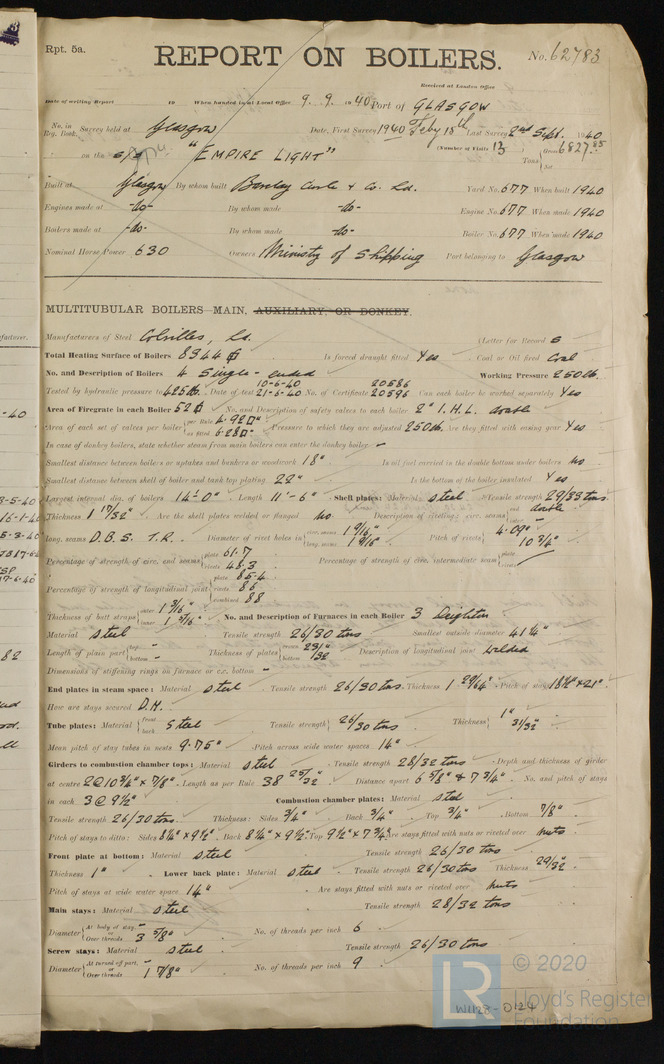 Rpt. 5a.
REPORT ON BOILERS.
No. 62783
Received at London Office
Date of writing Report 19 When handed in at Local Office 9. 9. 1940 Port of GLASGOW
No. in Reg. Book. Survey held at Glasgow Date, First Survey 1940 Feby 18th Last Survey 2nd Sept. 1940
(Number of Visits 13)
on the S/S "EMPIRE LIGHT" Tons Gross 6827.85 Net
Built at Glasgow By whom built Barclay Curle & Co. Ld. Yard No. 677 When built 1940
Engines made at -do- By whom made -do- Engine No. 677 When made 1940
Boilers made at -do- By whom made -do- Boiler No. 677 When made 1940
Nominal Horse Power 630 Owners Ministry of Shipping Port belonging to Glasgow
MULTITUBULAR BOILERS MAIN, AUXILIARY, OR DONKEY.
Manufacturers of Steel Colvilles, Ld. (Letter for Record S
Total Heating Surface of Boilers 8344 Is forced draught fitted Yes Coal or Oil fired Coal
No. and Description of Boilers 4 Single-ended Working Pressure 250 lb.
Tested by hydraulic pressure to 425 lb. Date of test 10-6-40 21-6-40 No. of Certificate 20586 20596 Can each boiler be worked separately Yes
Area of Firegrate in each Boiler 52 No. and Description of safety valves to each boiler 2" I.H.L. double
Area of each set of valves per boiler per Rule 4.92 as fitted 6.28 Pressure to which they are adjusted 250 lb. Are they fitted with easing gear Yes
In case of donkey boilers, state whether steam from main boilers can enter the donkey boiler -
Smallest distance between boilers or uptakes and bunkers or woodwork 18" Is oil fuel carried in the double bottom under boilers No
Smallest distance between shell of boiler and tank top plating 22" Is the bottom of the boiler insulated Yes
Largest internal dia. of boilers 14'-0" Length 11'-6" Shell plates: Material steel Tensile strength 29/33 tons
Thickness 1 17/32" Are the shell plates welded or flanged No Description of riveting: circ. seams end double inter -
long. seams D.B.S. T.R. Diameter of rivet holes in circ. seams 1 9/16" long. seams 1 9/16" Pitch of rivets 4.09" 10 3/4"
Percentage of strength of circ. end seams plate 61.7 rivets 48.3 Percentage of strength of circ. intermediate seam plate rivets
Percentage of strength of longitudinal joint plate 85.4 rivets 86 combined 88
Thickness of butt straps outer 1 3/16" inner 1 5/16" No. and Description of Furnaces in each Boiler 3 Deighton
Material steel Tensile strength 26/30 tons Smallest outside diameter 41 1/4"
Length of plain part top - bottom - Thickness of plates crown bottom 23/32" Description of longitudinal joint welded
Dimensions of stiffening rings on furnace or c.c. bottom -
End plates in steam space: Material steel Tensile strength 26/30 tons Thickness 1 29/64" Pitch of stays 18 1/2" x 21"
How are stays secured D.N.
Tube plates: Material front back steel Tensile strength 26/30 tons Thickness 1" 31/32"
Mean pitch of stay tubes in nests 9.75" Pitch across wide water spaces 14"
Girders to combustion chamber tops: Material steel Tensile strength 28/32 tons Depth and thickness of girder
at centre 2 @ 10 3/4" x 7/8" Length as per Rule 38 25/32" Distance apart 6 5/8" & 7 3/4" No. and pitch of stays
in each 3 @ 9 1/2" Combustion chamber plates: Material steel
Tensile strength 26/30 tons Thickness: Sides 3/4" Back 3/4" Top 3/4" Bottom 7/8"
Pitch of stays to ditto: Sides 8 1/4" x 9 1/2" Back 8 1/4" x 9 1/2" Top 9 1/2" x 7 3/4" Are stays fitted with nuts or riveted over nuts
Front plate at bottom: Material steel Tensile strength 26/30 tons
Thickness 1" Lower back plate: Material steel Tensile strength 26/30 tons Thickness 29/32"
Pitch of stays at wide water space 14" Are stays fitted with nuts or riveted over nuts
Main stays: Material steel Tensile strength 28/32 tons
Diameter At body of stay, or Over threads 3 5/8" No. of threads per inch 6
Screw stays: Material steel Tensile strength 26/30 tons
Diameter At turned off part, or Over threads 1 7/8" No. of threads per inch 9
© 2020
LR
Lloyd's Register
Foundation
W1128-0124